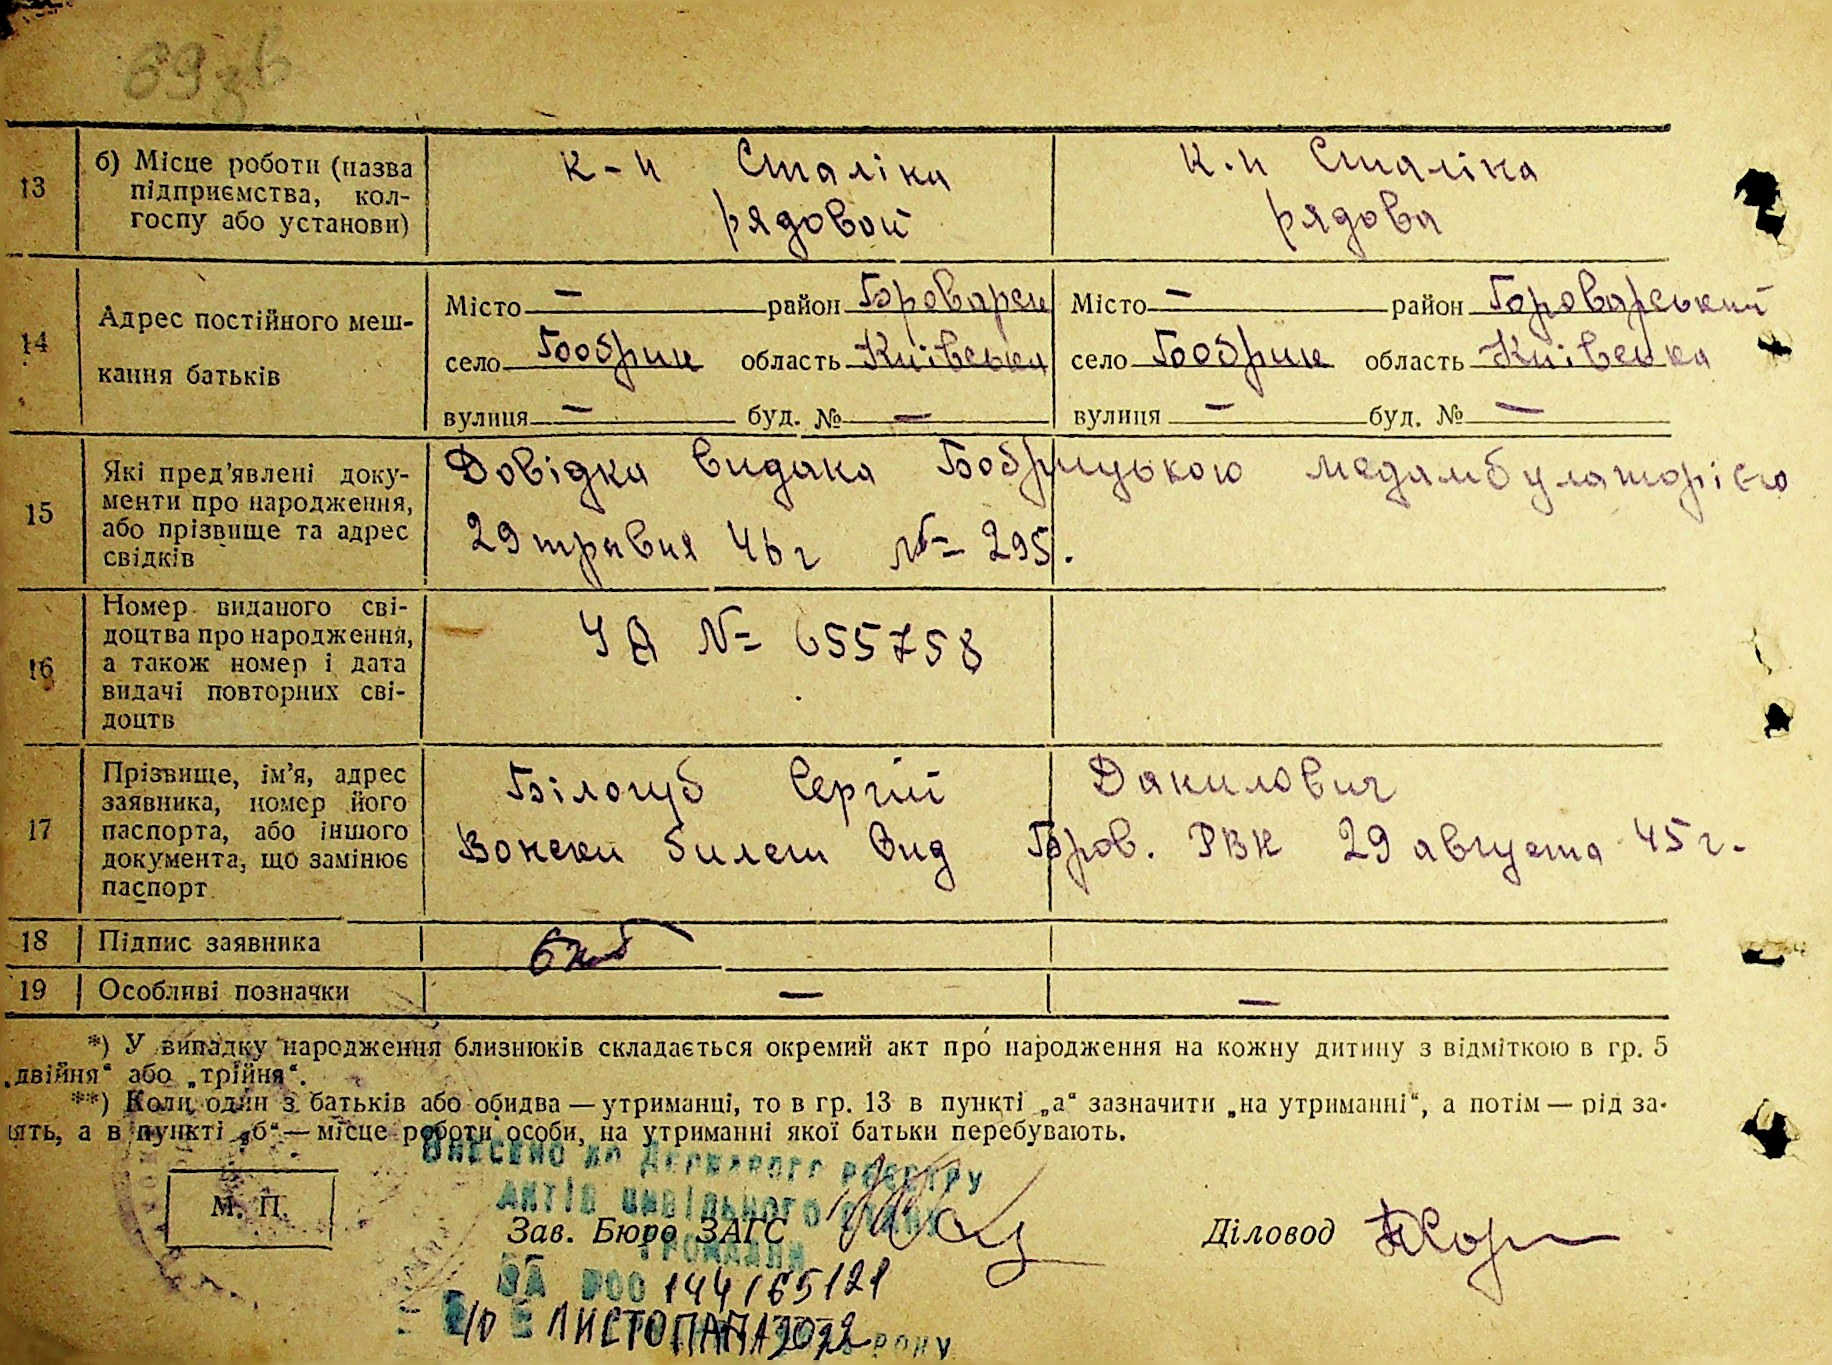 69зв
13 б) Місце роботи (назва підприємства, колгоспу або установи) к-п Сталіна рядовой к.п Сталіна рядова
14 Адрес постійного мешкання батьків
Місто — район Броварськ Місто — район Броварський
село Бобрик область Київська село Бобрик область Київська
вулиця — буд. № — вулиця — буд. № —
15 Які пред'явлені документи про народження, або прізвище та адрес свідків
Довідка видана Бобрицькою медамбулаторією
29 травня 46 г № 295.
16 Номер виданого свідоцтва про народження, а також номер і дата видачі повторних свідоцтв
УА № 655758
17 Прізвище, ім'я, адрес заявника, номер його паспорта, або іншого документа, що замінює паспорт
Білогуб Сергій Данилович
Вонски билет Вид Бров. РВК 29 августа 45 г.
18 Підпис заявника
19 Особливі позначки — —
*) У випадку народження близнюків складається окремий акт про народження на кожну дитину з відміткою в гр. 5
„двійня“ або „трійня“.
**) Коли один з батьків або обидва — утриманці, то в гр. 13 в пункті „а“ зазначити „на утриманні“, а потім — рід за-
нять, а в пункті „б“ — місце роботи особи, на утриманні якої батьки перебувають.
ВНЕСЕНО ДО ДЕРЖАВНОГО РЕЄСТРУ
АКТІВ ЦИВІЛЬНОГО СТАНУ
ГРОМАДЯН
М. П. Зав. Бюро ЗАГС Діловод
ЗА 00144165121
ЛИСТОПАДА 2022 РОКУ